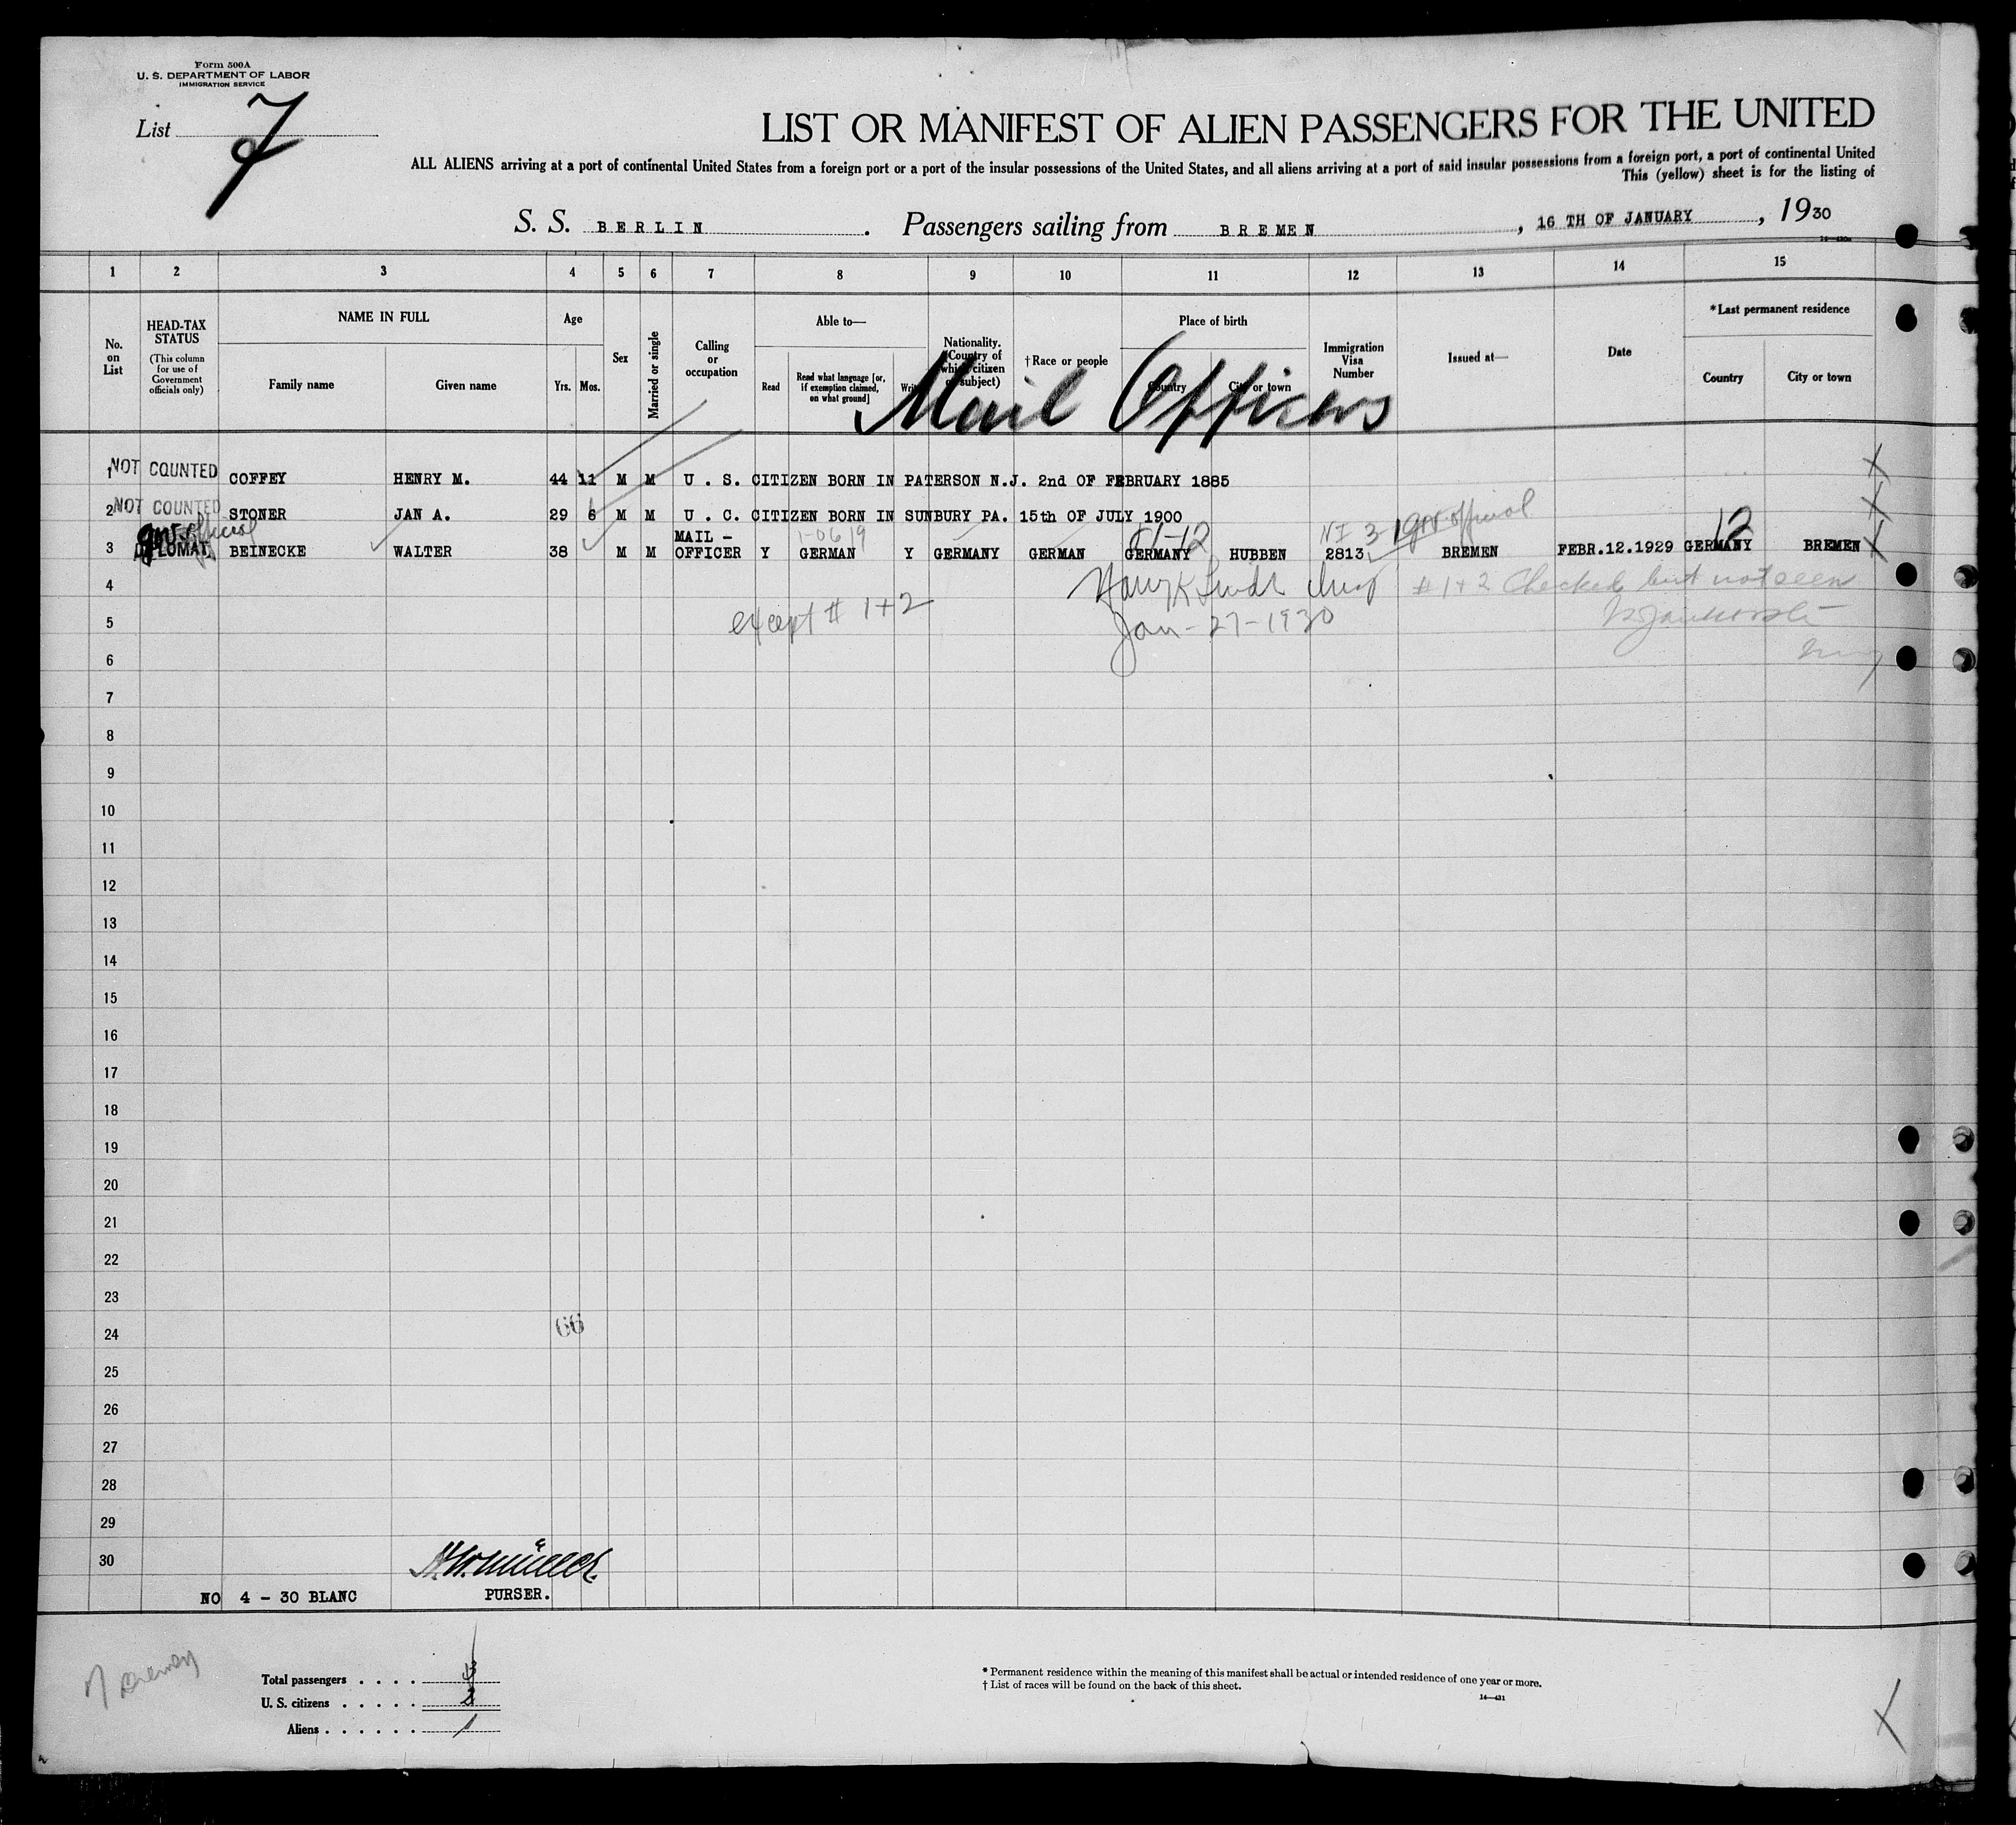 Form 500A
U. S. DEPARTMENT OF LABOR
IMMIGRATION SERVICE
List 7
LIST OR MANIFEST OF ALIEN PASSENGERS FOR THE UNITED
ALL ALIENS arriving at a port of continental United States from a foreign port or a port of the insular possessions of the United States, and all aliens arriving at a port of said insular possessions from a foreign port, a port of continental United
This (yellow) sheet is for the listing of
S. S. BERLIN. Passengers sailing from BREMEN, 16 TH OF JANUARY, 1930
1 2 3 4 5 6 7 8 9 10 11 12 13 14 15
No. on List
HEAD-TAX STATUS
(This column for use of Government officials only)
NAME IN FULL
Family name Given name
Age
Yrs. Mos.
Sex
Married or single
Calling or occupation
Able to—
Read
Read what language [or, if exemption claimed, on what ground]
Write
Nationality. (Country of which citizen or subject)
†Race or people
Place of birth
Country City or town
Immigration Visa Number
Issued at—
Date
*Last permanent residence
Country City or town
Mail Officers
1 NOT COUNTED COFFEY HENRY M. 44 11 M M U . S. CITIZEN BORN IN PATERSON N.J. 2nd OF FEBRUARY 1885
2 NOT COUNTED STONER JAN A. 29 6 M M U . C. CITIZEN BORN IN SUNBURY PA. 15th OF JULY 1900
gov official
3 DIPLOMAT. BEINECKE WALTER 38 M M MAIL - OFFICER Y GERMAN Y GERMANY GERMAN GERMANY HUBBEN 2813 BREMEN FEBR.12.1929 GERMANY BREMEN
12
NI 3 gov official
4 # 1+2 Checked but not seen
5 except # 1+2 Jan-27-1930
6
7
8
9
10
11
12
13
14
15
16
17
18
19
20
21
22
23
24 66
25
26
27
28
29
30
NO 4 - 30 BLANC PURSER.
Total passengers . . . . 3
U. S. citizens . . . . . 2
Aliens . . . . . . 1
* Permanent residence within the meaning of this manifest shall be actual or intended residence of one year or more.
† List of races will be found on the back of this sheet.
14—431